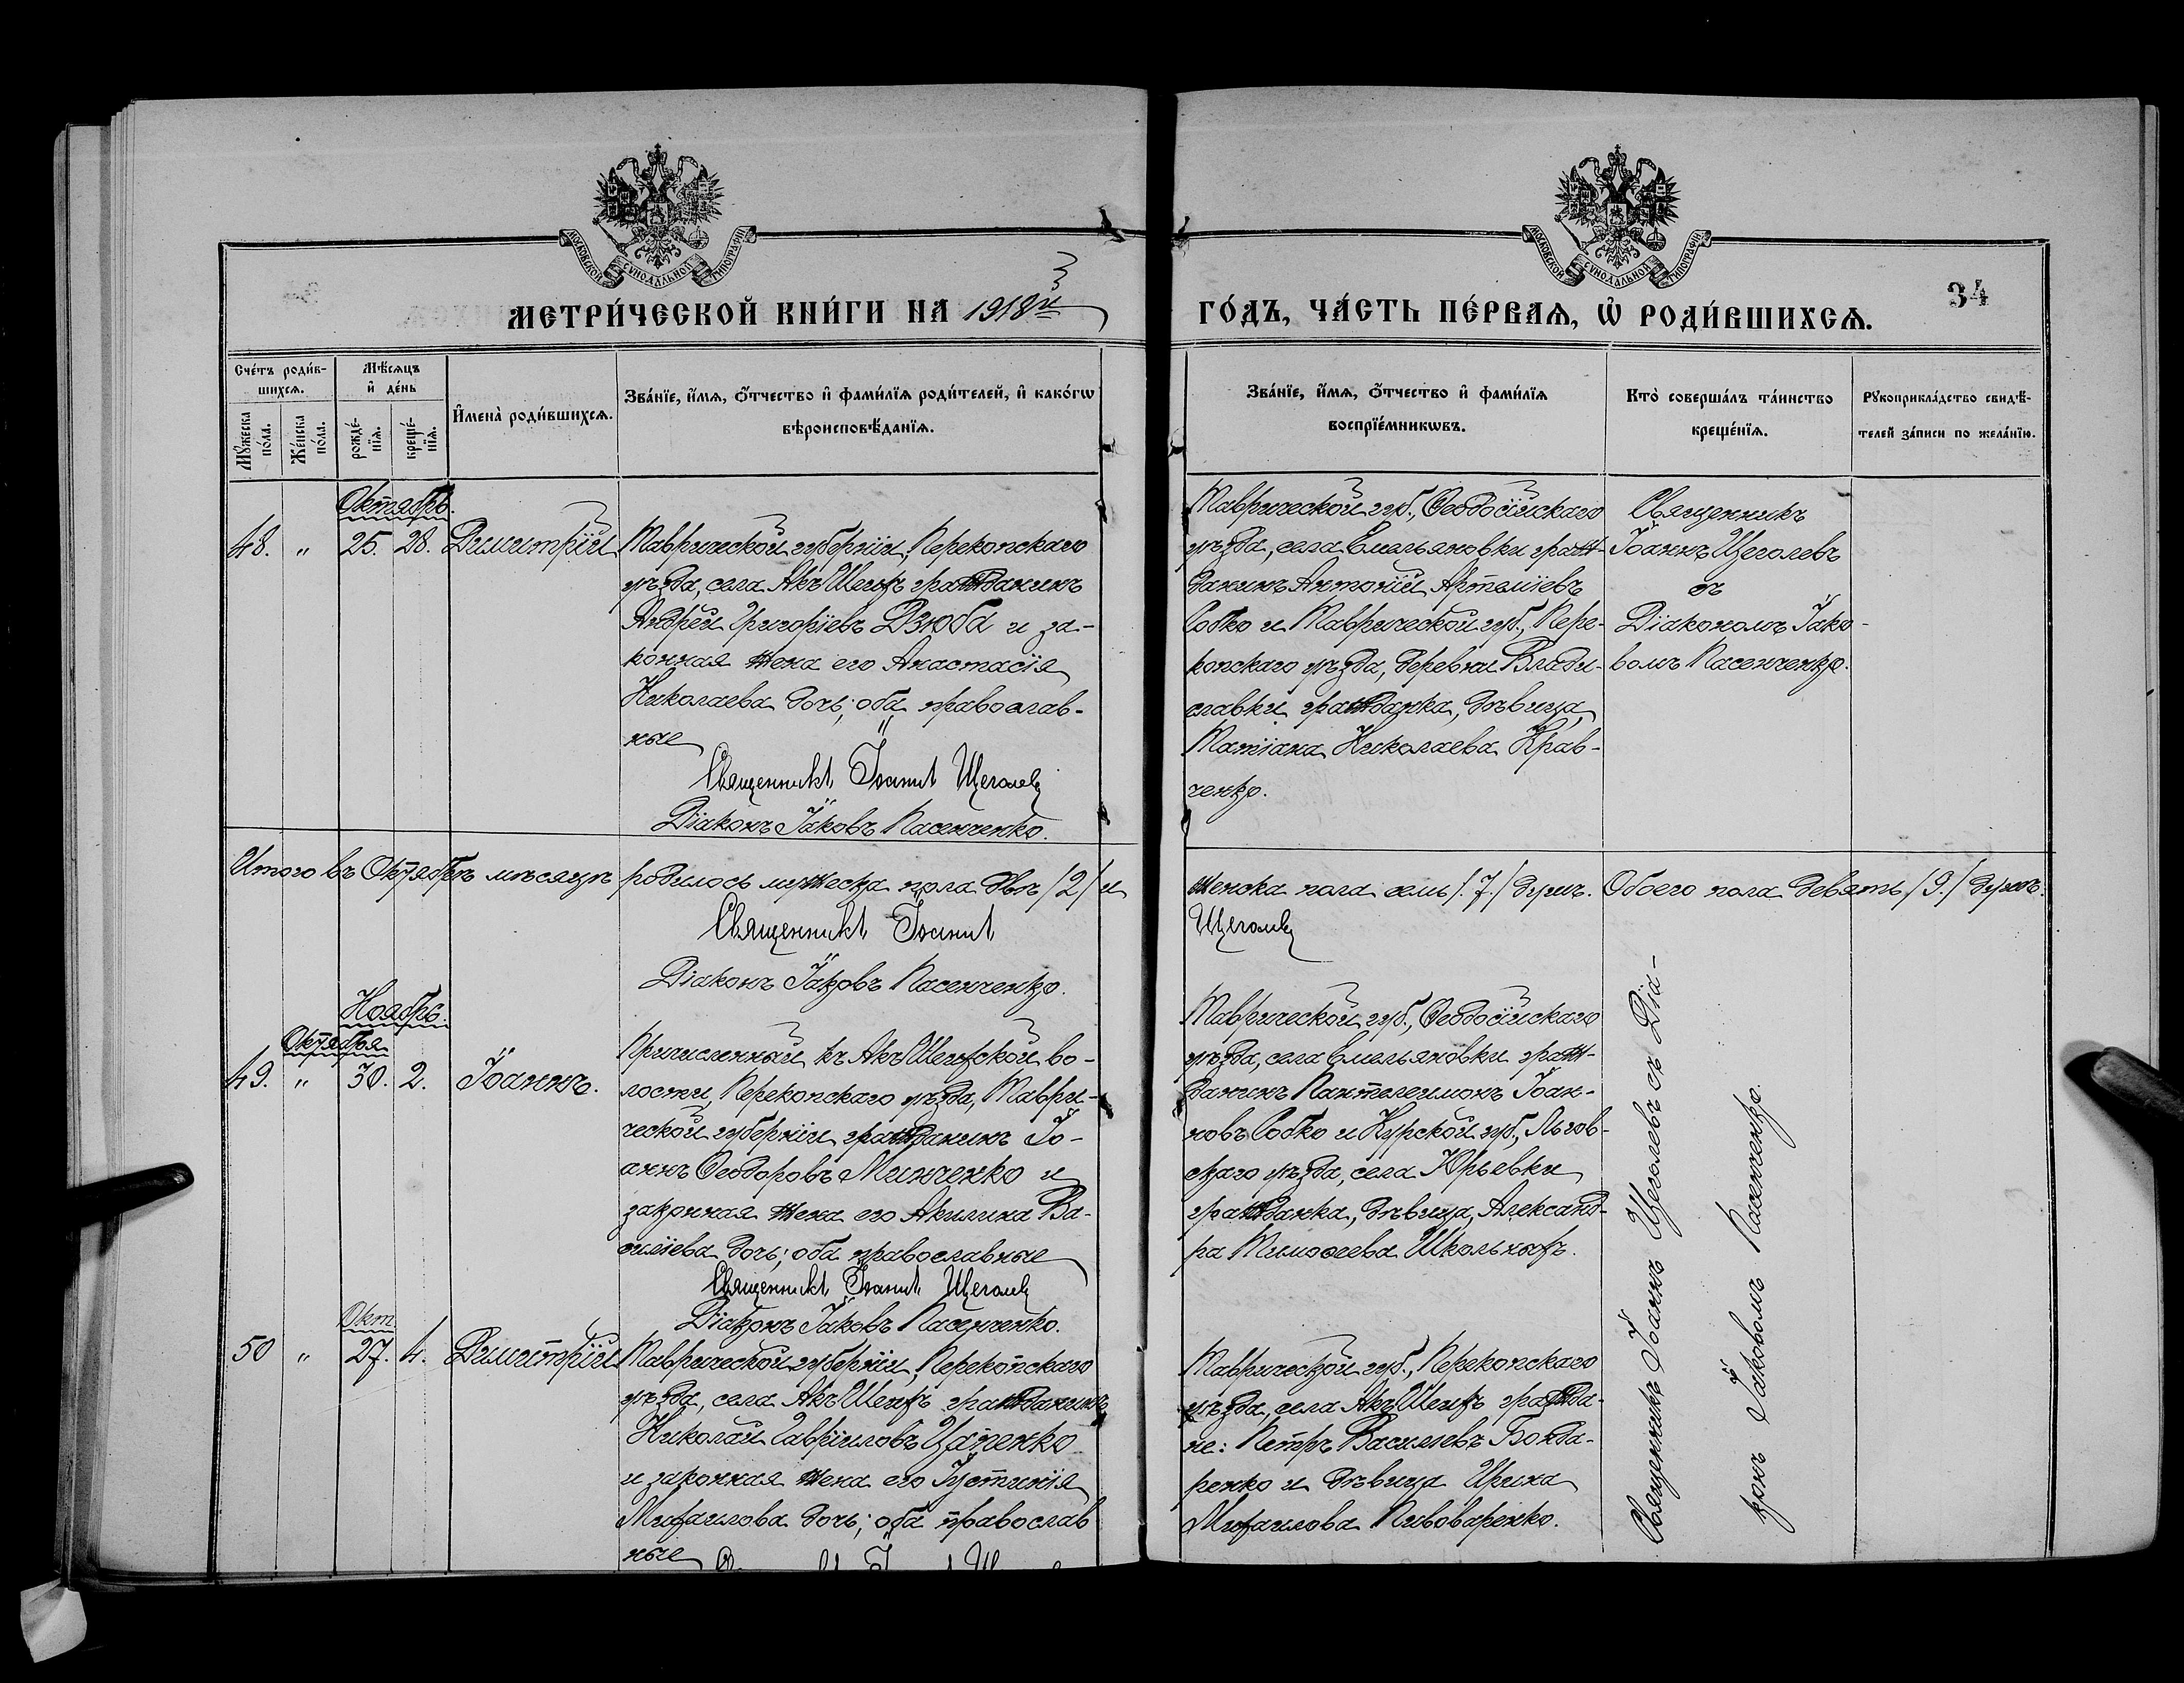 МОСКОВСКОЙ СѴНОДАЛЬНОЙ ТИПОГРАФІИ
МОСКОВСКОЙ СѴНОДАЛЬНОЙ ТИПОГРАФІИ
МЕТРИ́ЧЕСКОЙ КНИ́ГИ НА 1918й
ГО́ДЪ, ЧА́СТЬ ПЕ́РВАѦ, Ѡ҆ РОДИ́ВШИХСѦ.
34
Сче́тъ роди́в-
шихсѧ.
Мꙋ́жеска по́ла.
Же́нска по́ла.
Мѣ́сѧцъ
и҆ де́нь
рожде́-
нїѧ.
креще́-
нїѧ.
И҆мена̀ роди́вшихсѧ.
Зва́нїе, и҆́мѧ, ѻ҆́тчество и҆ фами́лїѧ роди́телей, и҆ како́гѡ
вѣроисповѣ́данїѧ.
Зва́нїе, и҆́мѧ, ѻ҆́тчество и҆ фами́лїѧ
воспрїе́мникѡвъ.
Кто̀ соверша́лъ та́инство
креще́нїѧ.
Рꙋкоприкла́дство свидѣ́-
телей за́писи по жела́нїю.
Октябрь.
48. " 25. 28. Димитрій
Таврической губерніи, Перекопскаго
уѣзда, села Акъ Шеихъ гражданинъ
Андрей Григоріевъ Дзюба и за-
конная жена его Анастасія
Николаева дочь; оба православ-
ные
Священникъ Іоаннъ Щеголевъ
Діаконъ Іаковъ Пасенченко.
Таврической губ., Ѳеодосійскаго
уѣзда, села Емельяновки граж-
данинъ Антоній Артеміевъ
Собко и Таврической губ., Пере-
копскаго уѣзда, деревни Влади-
славки гражданка, дѣвица,
Татіана Николаева Крав-
ченко.
Священникъ
Іоаннъ Щеголевъ
съ
Діакономъ Іако-
вомъ Пасенченко.
Итого въ Октябрѣ мѣсяцѣ родилось мужеска пола двѣ /2/ и
женска пола семь /.7./ душъ. Обоего пола девять /9./ душъ.
Священникъ Іоаннъ
Щеголевъ
Діаконъ Іаковъ Пасенченко.
Ноябрь.
Октября
49. " 30. 2. Іоаннъ.
Причисленный къ Акъ Шеихской во-
лости, Перекопскаго уѣзда, Таври-
ческой губерніи гражданинъ Іо-
аннъ Ѳеодоровъ Минченко и
законная жена его Акилина Ва-
силіева дочь; оба православные
Священникъ Іоаннъ Щеголевъ
Діаконъ Іаковъ Пасенченко.
Таврической губ., Ѳеодосійскаго
уѣзда, села Емельяновки граж-
данинъ Пантелеимонъ Іоан-
новъ Собко и Курской губ., Льгов-
скаго уѣзда, села Юрьевки
гражданка, дѣвица, Александ-
ра Тимоѳеева Школьныхъ.
Окт.
50 " 27. 4. Димитрій
Таврической губерніи, Перекопскаго
уѣзда, села Акъ Шеихъ гражданинъ
Николай Гавріиловъ Цапенко
и законная жена его Іустинія
Михаилова дочь; оба православ
ные
Таврической губ., Перекопскаго
уѣзда, села Акъ Шеихъ гражда-
не: Петръ Василіевъ Бонда-
ренко и дѣвица Ирина
Михаилова Пивоваренко.
Священникъ Іоаннъ Щеголевъ съ Діа-
кономъ Іаковомъ Пасенченко.